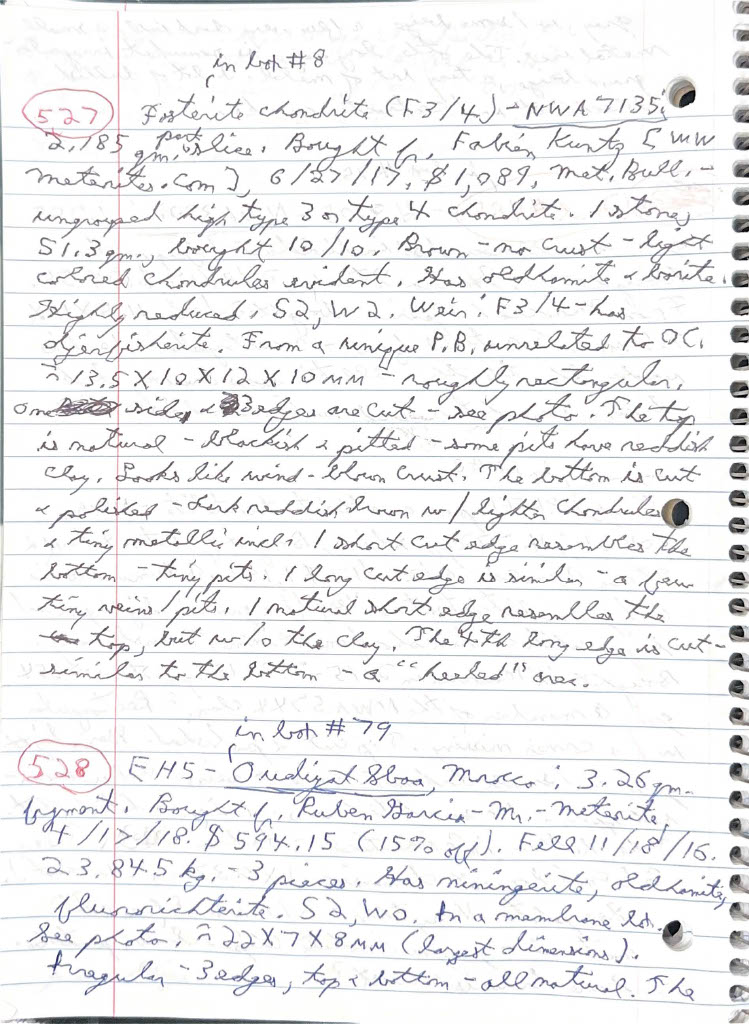 in box #8
527 Fosterite chondrite (F3/4) - NWA 7135;
2.185 gm. part slice. Bought fr. Fabien Kuntz [ WWW
meteorites.com ], 6/27/17, $1,089, Met. Bull. -
ungrouped high type 3 or type 4 chondrite. 1 stone,
51.3 gm., bought 10/10. Brown - no crust - light
colored chondrules evident. Has oldhamite &
Highly reduced. S2, W2. Weir: F3/4 - has
djerfisherite. From a unique P.B. unrelated to OC.
≈ 13.5 X 10 X 12 X 10 MM - roughly rectangular.
One side, & 3 edges are cut - see photo. The top
is natural - blackish & pitted - some pits have reddish
clay. Looks like wind-blown crust. The bottom is cut
& polished - dark reddish brown w/ lighter chondrules
& tiny metallic incl. 1 short cut edge resembles the
bottom - tiny pits. 1 long cut edge is similar - a few
tiny veins/pits. 1 natural short edge resembles the
top, but w/o the clay. The 4th long edge is cut -
similar to the bottom - a "healed" area.
in box #79
528 EH5 - Oudiyat Sbaa, Morocco: 3.26 gm.
fragment. Bought fr. Ruben Garcia - Mr. - Meteorite,
4/17/18. $594.15 (15% off). Fell 11/18/16.
23.845 kg. - 3 pieces. Has niningerite, oldhamite,
fluororichterite. S2, W0. In a membrane box.
See photo. ≈ 22X7X8 MM (largest dimensions).
Irregular - 3 edges, top & bottom - all natural. The